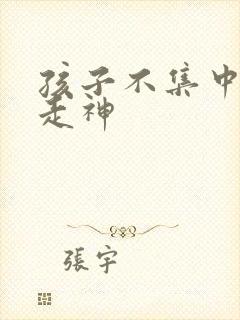 孩子不集中
走神
張宇